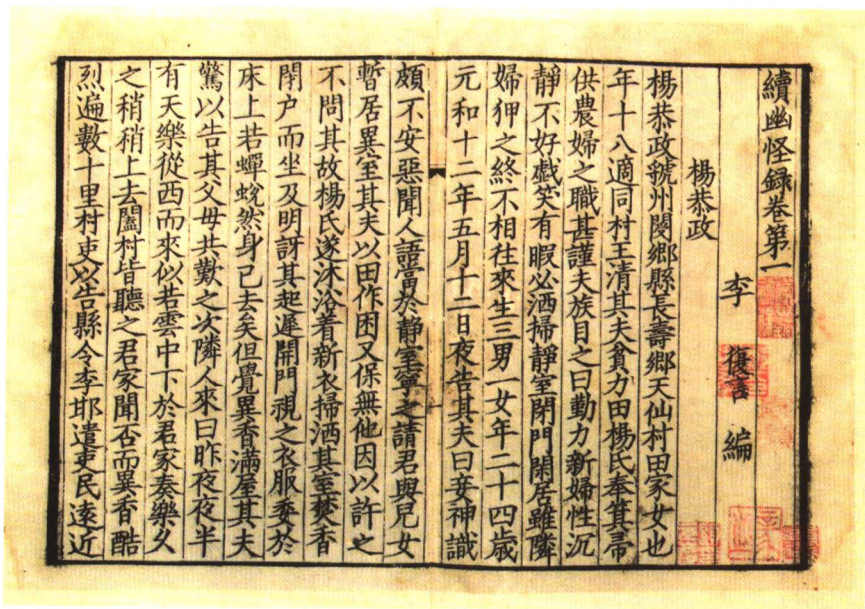 續幽怪録卷第一
李 復言 編
楊恭政
楊恭政虢州閿郷縣長壽郷天仙村田家女也
年十八適同村王清其夫貧力田楊氏奉箕帚
供農婦之職甚謹夫族目之曰勤力新婦性沉
靜不好戲笑有暇必洒掃靜室閉門閑居雖隣
婦狎之終不相徃來生三男一女年二十四歲
元和十二年五月十二日夜告其夫曰妾神識
頗不安惡聞人語當於靜室寧之請君與兒女
暫居異室其夫以田作困又保無他因以許之
不問其故楊氏遂沐浴着新衣掃洒其室焚香
閉户而坐及明訝其起遲開門視之衣服委於
床上若蟬蛻然身已去矣但覺異香滿屋其夫
驚以告其父母共歎之次隣人來曰昨夜夜半
有天樂從西而來似若雲中下於君家奏樂久
之稍稍上去闔村皆聽之君家聞否而異香酷
烈遍數十里村吏以告縣令李邯遣吏民逺近